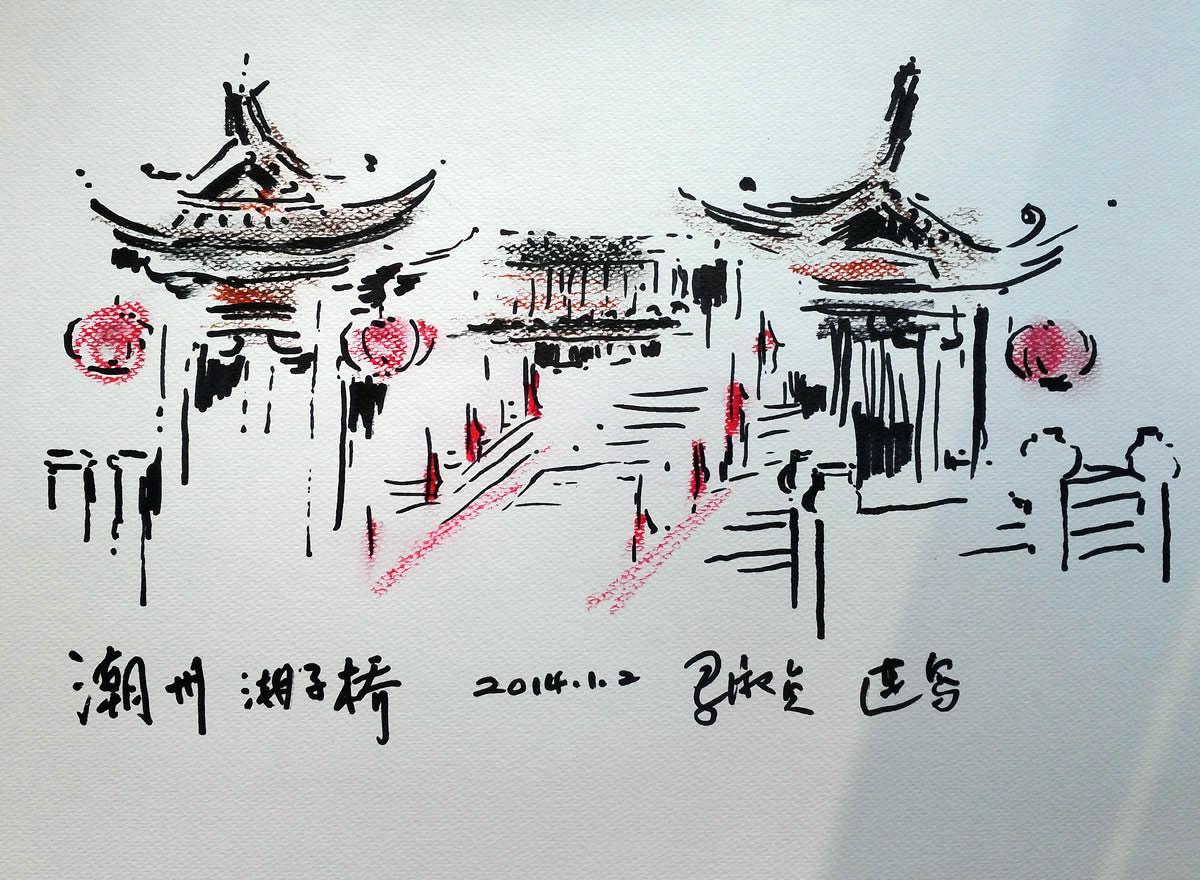 潮州 湘子桥 2014.1.2 淑贞 速写